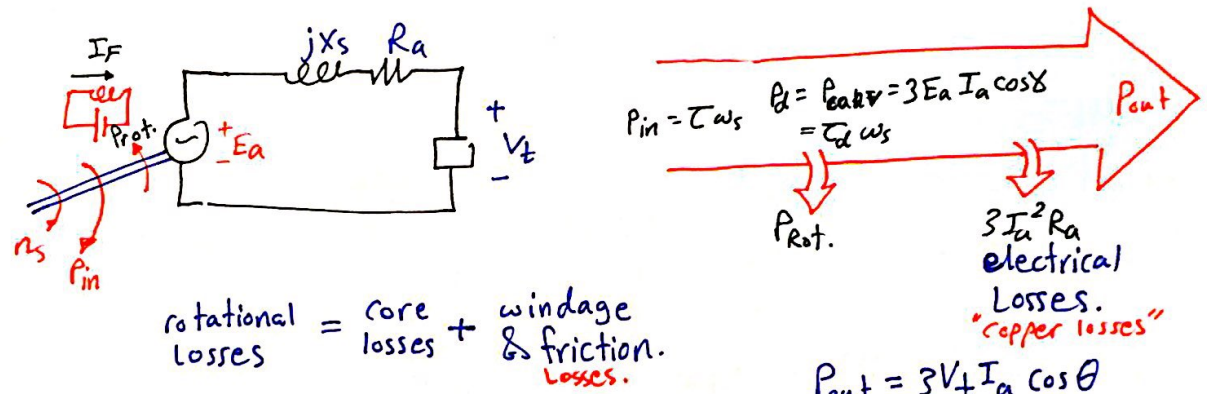 I_F
jX_s R_a
Prot.
+
-
E_a
+
V_t
-
n_s
Pin
rotational losses = core losses + windage & friction.
Losses.
Pin = τω_s
P_d = P_conv = 3E_a I_a cosγ
= τ_d ω_s
Pout
P_Rot.
3I_a²R_a
electrical
Losses.
"copper losses"
Pout = 3V_t I_a cosθ